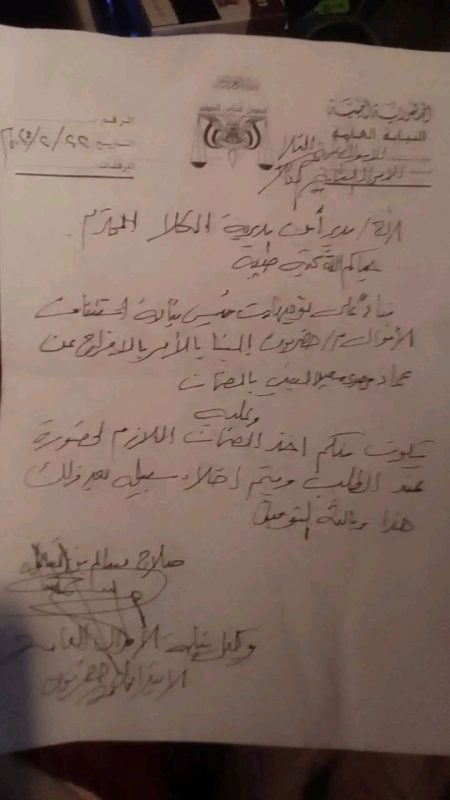 الجمهورية اليمنية
النيابة العامة
الرقم
التاريخ ٢٢/٢/
المرفقات
الأخ/ مدير أمن مديرية المكلا المحترم
حياكم الله تحية طيبة
بناءً على توجيهات رئيس نيابة استئناف
الأموال م/حضرموت إلينا بالأمر بالافراج عن
عماد بالضمان
وعليه
يكون منكم اخذ الضمان اللازم لحضوره
عند الطلب ويتم اخلاء سبيله بعد ذلك
هذا وبالله التوفيق
صلاح سالم بن
وكيل نيابة الأموال العامة
الابتدائية حضرموت